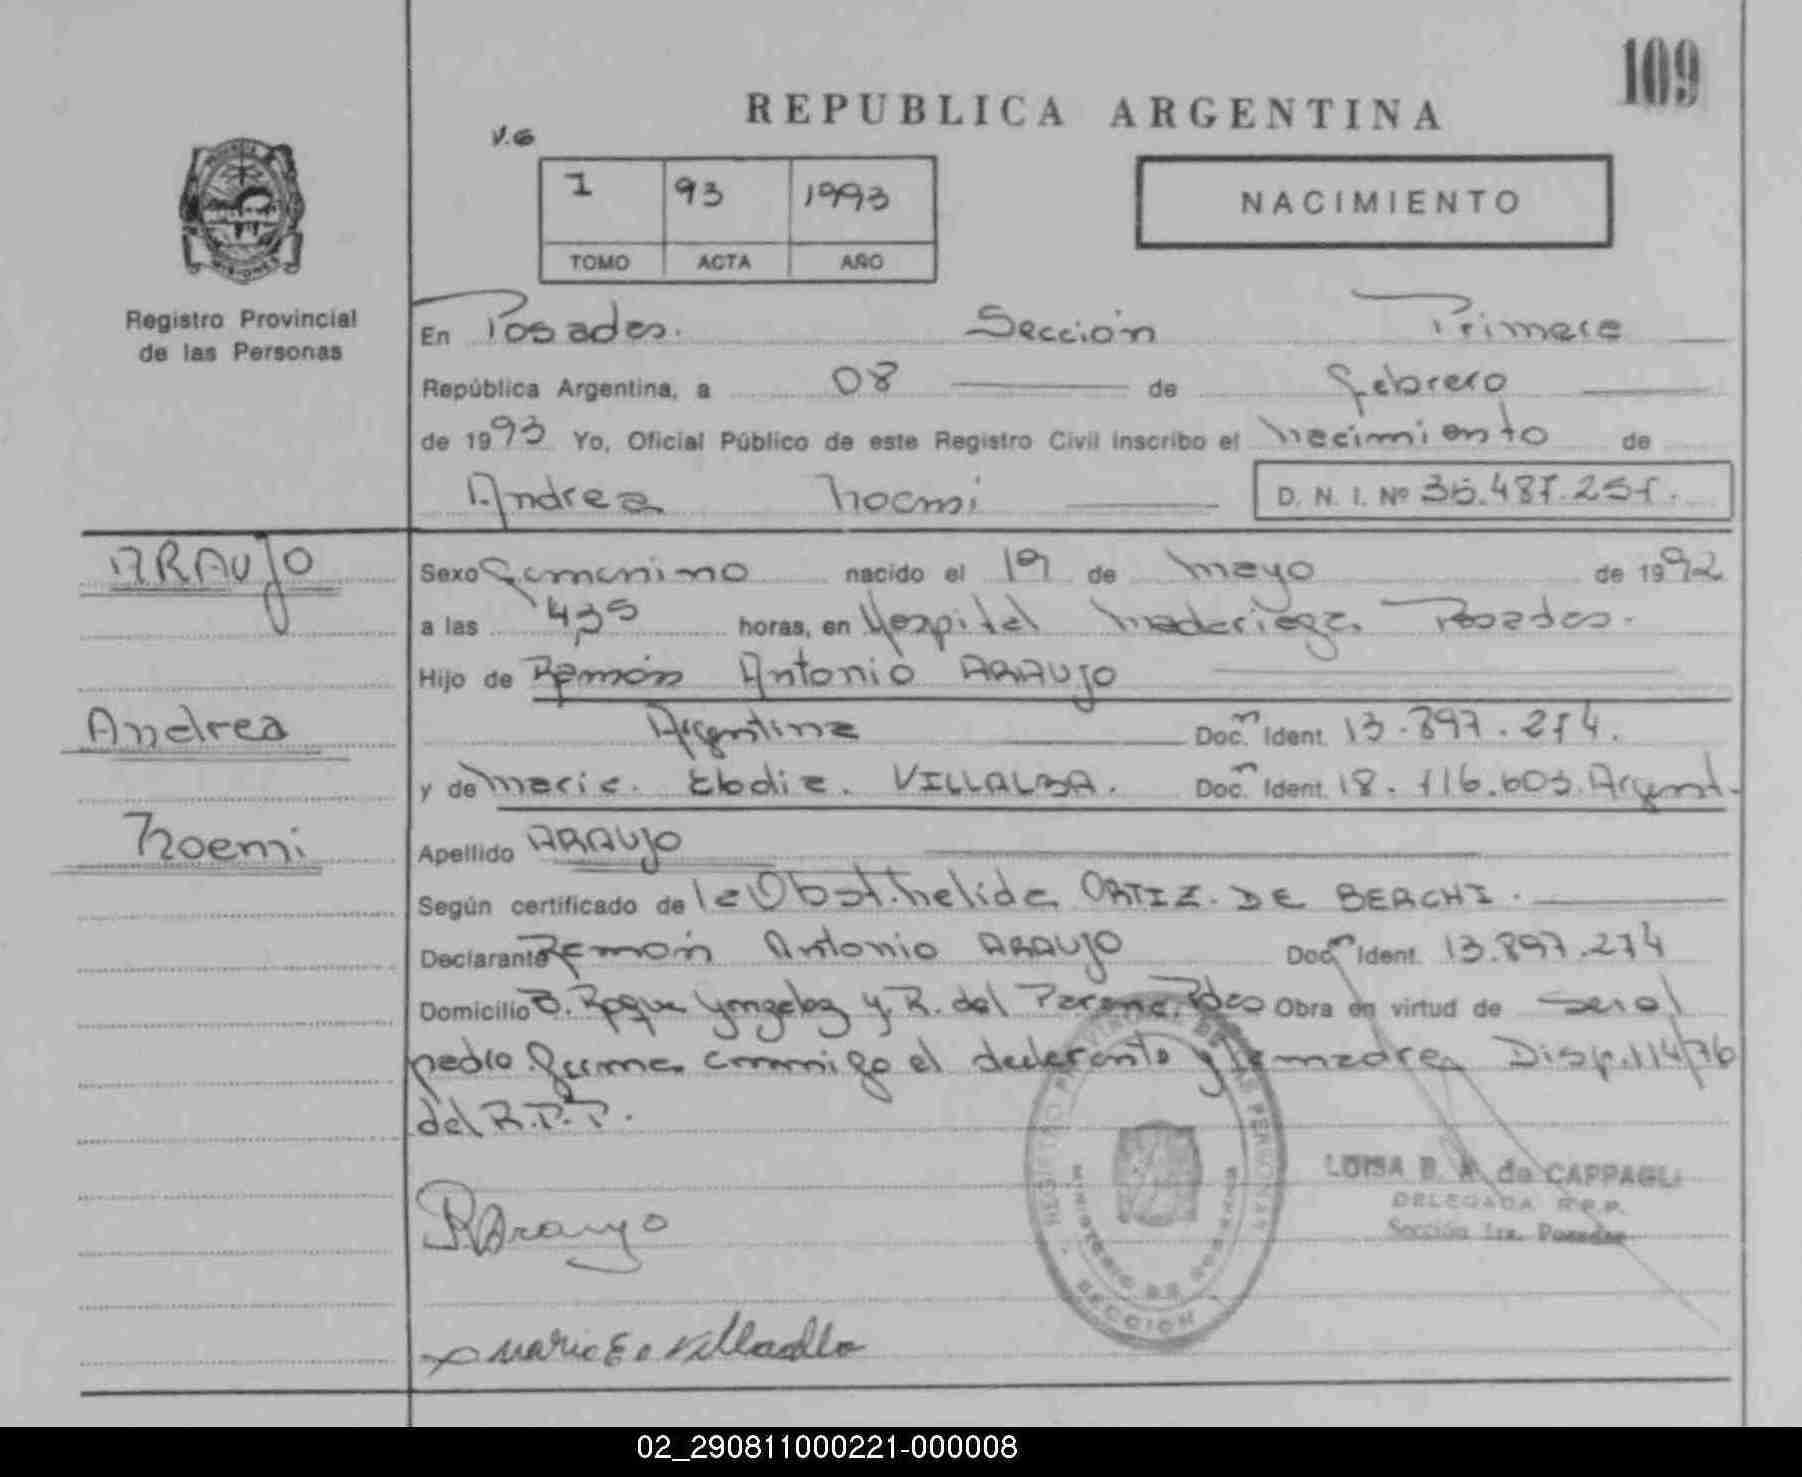 109
REPUBLICA ARGENTINA
V.G
1 93 1993
TOMO ACTA AÑO
NACIMIENTO
PROVINCIA
MISIONES
Registro Provincial
de las Personas
En Posadas. Sección Primera
República Argentina, a 08 de febrero
de 1993 Yo, Oficial Público de este Registro Civil inscribo el nacimiento de
Andrea Noemi D. N. I. Nº
ARAUJO
Sexo femenino nacido el 19 de mayo de 1992
a las 4,35 horas, en Hospital Madariaga. Posadas.
Hijo de Ramón Antonio ARAUJO
Andrea
Argentina Doc. Ident. 13.897.274.
y de Maria. Elodia. VILLALBA. Doc. Ident. 18.116.603. Argent.
Noemi
Apellido ARAUJO
Según certificado de la Obst. Nelida ORTIZ. DE BERCHI.
Declarante Ramón Antonio ARAUJO Doc. Ident. 13.897.274
Domicilio B. Roque Gonzalez y R. del Parana. Pdas Obra en virtud de ser el
pedro. firman conmigo el declarante y la madre. Disp. 114/76
del R.P.P.
REGISTRO PROVINCIAL DE LAS PERSONAS
MINISTERIO DE GOBIERNO
SECCION 1
LUISA B. A. de CAPPAGLI
DELEGADA R.P.P.
Sección 1ra. Posadas
R Araujo
Maria E. Villalba
02_290811000221-000008